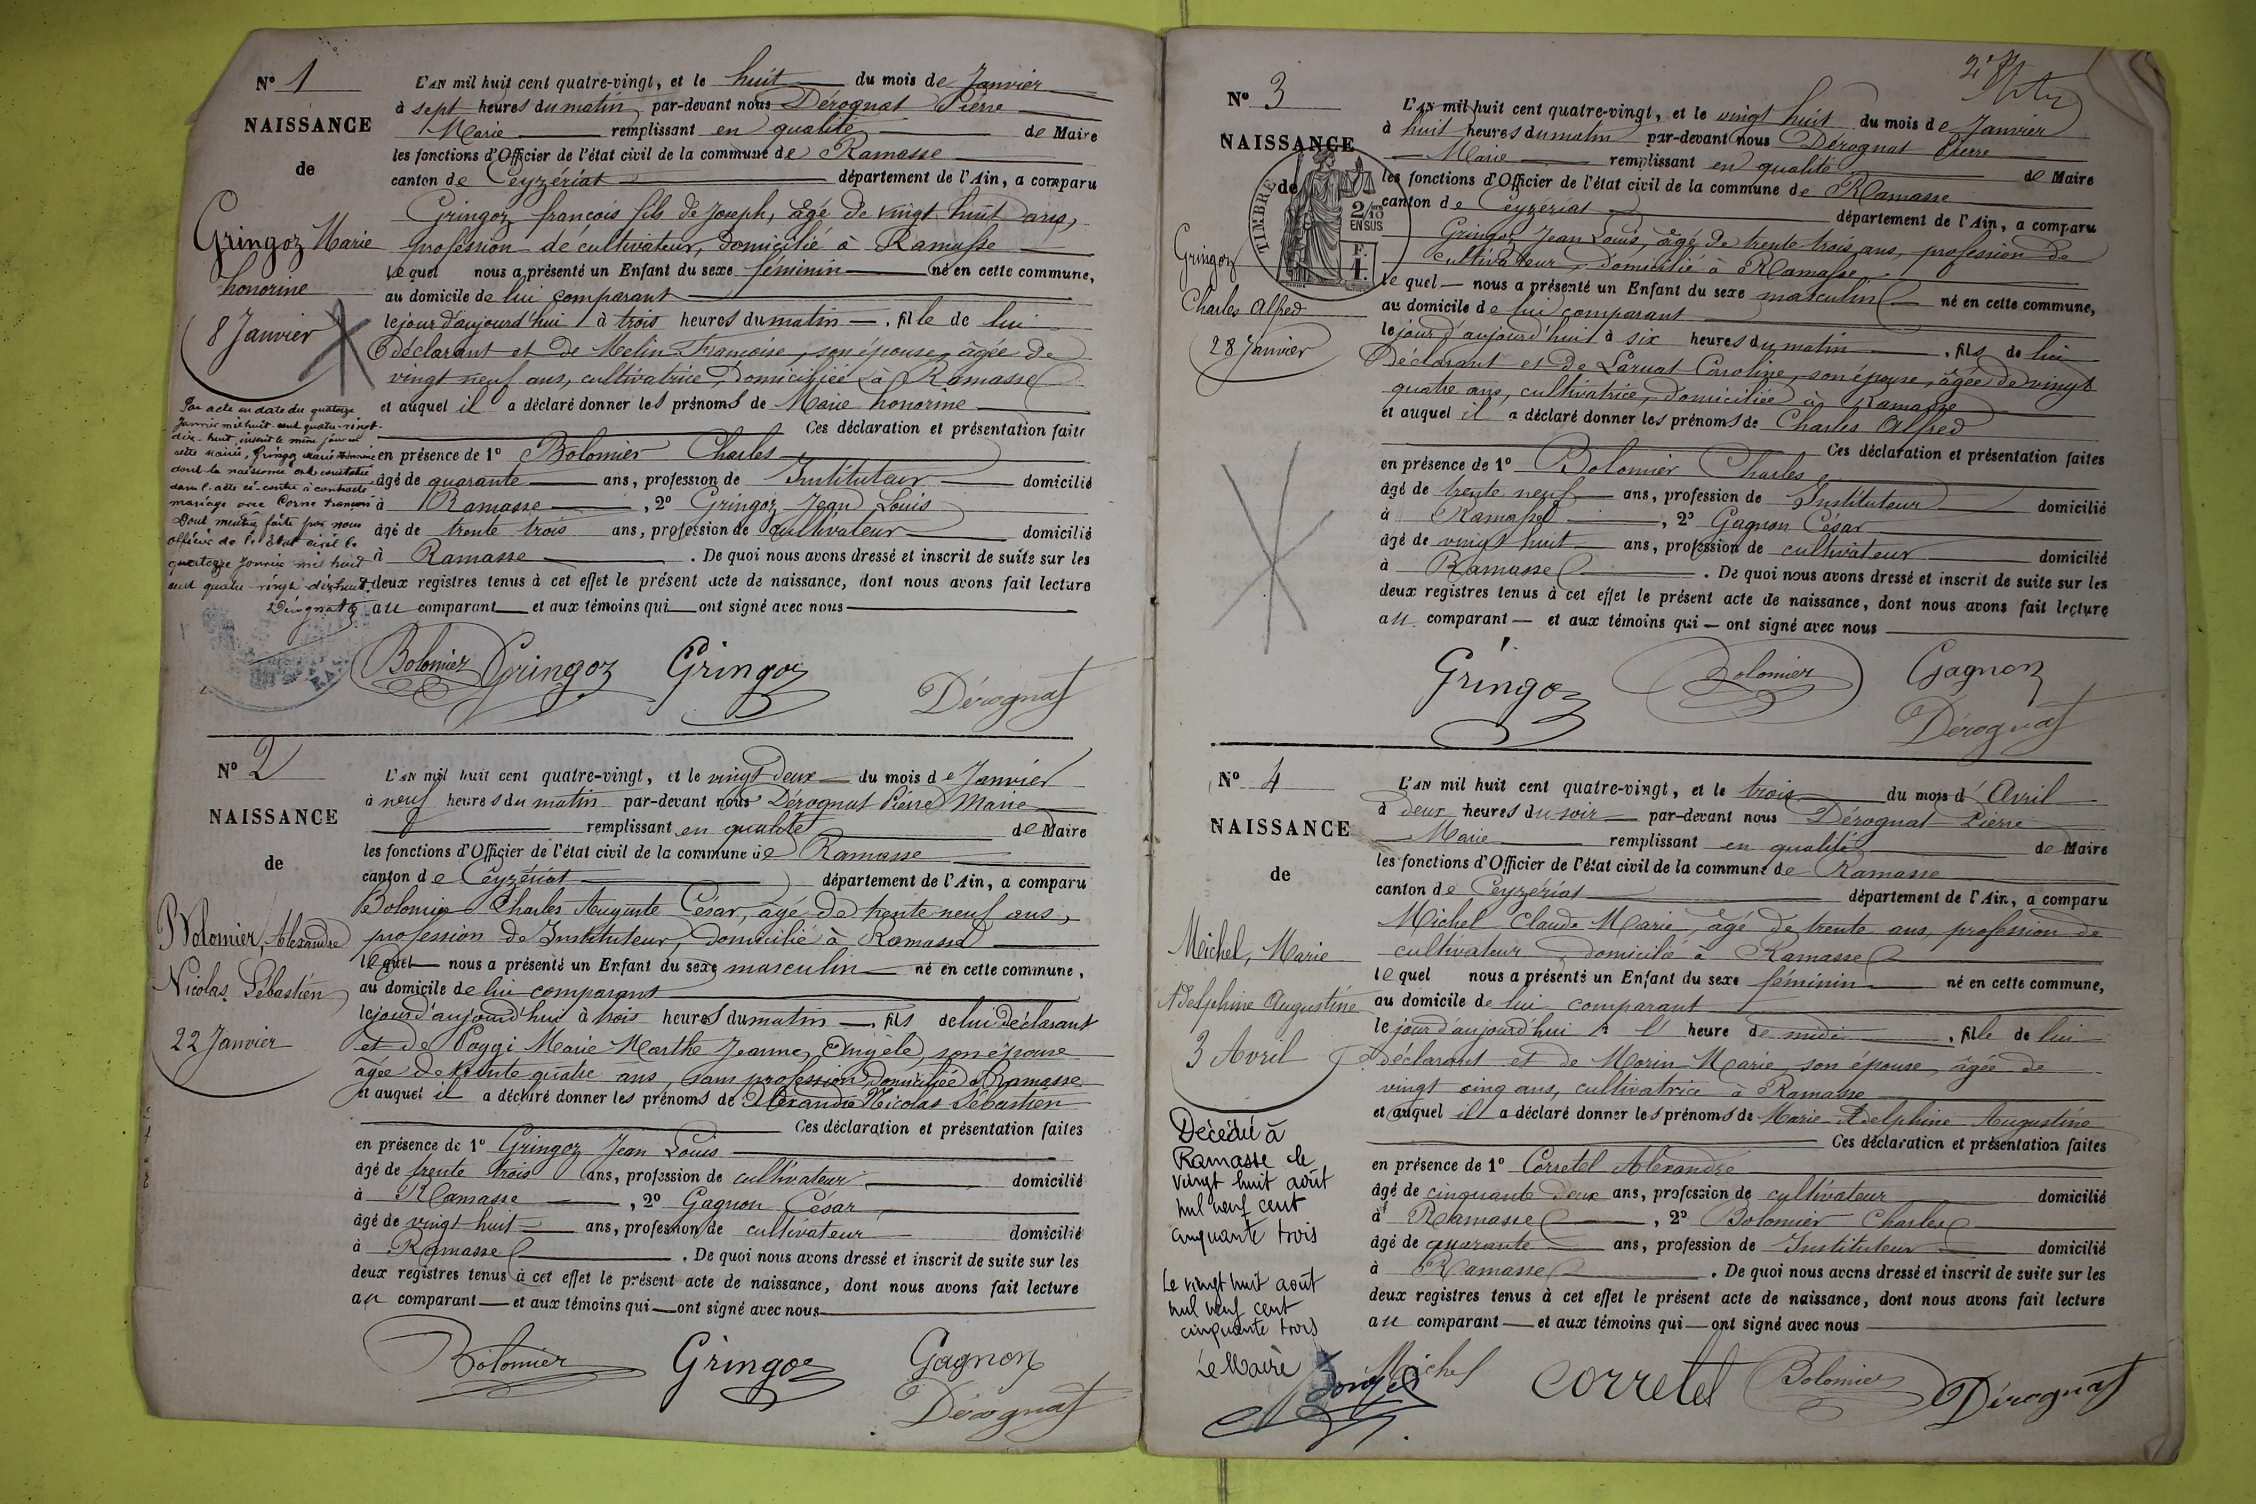 N° 1
NAISSANCE
de
Gringoz Marie
honorine
8 Janvier
L'AN mil huit cent quatre-vingt, et le huit du mois de Janvier
à sept heures du matin par-devant nous Dérognat Pierre
Marie remplissant en qualité de Maire
les fonctions d'Officier de l'état civil de la commune de Ramasse
canton de Ceyzériat département de l'Ain, a comparu
Gringoz françois fils de Joseph, âgé de vingt huit ans,
profession de cultivateur, domicilié à Ramasse
lequel nous a présenté un Enfant du sexe féminin né en cette commune,
au domicile de lui comparant
le jour d'aujourd'hui à trois heures du matin , fille de lui
déclarant et de Melin Françoise, son épouse, âgée de
vingt neuf ans, cultivatrice, domiciliée à Ramasse
et auquel il a déclaré donner les prénoms de Marie honorine
Ces déclaration et présentation faite
en présence de 1° Bolomier Charles
âgé de quarante ans, profession de Instituteur domicilié
à Ramasse , 2° Gringoz Jean Louis
âgé de trente trois ans, profession de cultivateur domicilié
à Ramasse . De quoi nous avons dressé et inscrit de suite sur les
deux registres tenus à cet effet le présent acte de naissance, dont nous avons fait lecture
au comparant et aux témoins qui ont signé avec nous
Par acte en date du quatorze
Janvier mil huit cent quatre-vingt-
dix-huit, inscrit le même jour en
cette mairie, Gringoz Marie Honorine
dont la naissance est constatée
dans l'acte ci-contre a contracté
mariage avec Corne François
Dont mention faite par nous
officier de l'état civil le
quatorze Janvier mil huit
cent quatre-vingt dix-huit.
Dérognat
Bolomier Gringoz Gringoz
Dérognat
N° 2
NAISSANCE
de
Bolomier, Alexandre
Nicolas Sébastien
22 Janvier
L'AN mil huit cent quatre-vingt, et le vingt deux du mois de Janvier
à neuf heures du matin par-devant nous Dérognat Pierre Marie
remplissant en qualité de Maire
les fonctions d'Officier de l'état civil de la commune de Ramasse
canton de Ceyzériat département de l'Ain, a comparu
Bolomier Charles Auguste César, âgé de trente neuf ans,
profession de Instituteur, domicilié à Ramasse
lequel nous a présenté un Enfant du sexe masculin né en cette commune,
au domicile de lui comparant
le jour d'aujourd'hui à trois heures du matin , fils de lui déclarant
et de Poggi Marie Marthe Jeanne Angèle, son épouse
âgée de trente quatre ans, sans profession, domiciliée à Ramasse
et auquel il a déclaré donner les prénoms de Alexandre Nicolas Sébastien
Ces déclaration et présentation faites
en présence de 1° Gringoz Jean Louis
âgé de trente trois ans, profession de cultivateur domicilié
à Ramasse , 2° Gagnon César
âgé de vingt huit ans, profession de cultivateur domicilié
à Ramasse . De quoi nous avons dressé et inscrit de suite sur les
deux registres tenus à cet effet le présent acte de naissance, dont nous avons fait lecture
au comparant et aux témoins qui ont signé avec nous
Bolomier Gringoz Gagnon
Dérognat
N° 3
NAISSANCE
de
TIMBRE
2/10
EN SUS
F.
1.
Gringoz
Charles Alfred
28 Janvier
L'AN mil huit cent quatre-vingt, et le vingt huit du mois de Janvier
à huit heures du matin par-devant nous Dérognat Pierre
Marie remplissant en qualité de Maire
les fonctions d'Officier de l'état civil de la commune de Ramasse
canton de Ceyzériat département de l'Ain, a comparu
Gringoz Jean Louis, âgé de trente trois ans, profession de
cultivateur, domicilié à Ramasse
lequel nous a présenté un Enfant du sexe masculin né en cette commune,
au domicile de lui comparant
le jour d'aujourd'huit à six heures du matin , fils de lui
Déclarant et de Laruat Caroline, son épouse, âgée de vingt
quatre ans, cultivatrice, domiciliée à Ramasse
et auquel il a déclaré donner les prénoms de Charles Alfred
Ces déclaration et présentation faites
en présence de 1° Bolomier Charles
âgé de trente neuf ans, profession de Instituteur domicilié
à Ramasse , 2° Gagnon César
âgé de vingt huit ans, profession de cultivateur domicilié
à Ramasse . De quoi nous avons dressé et inscrit de suite sur les
deux registres tenus à cet effet le présent acte de naissance, dont nous avons fait lecture
au comparant et aux témoins qui ont signé avec nous
Gringoz Bolomier Gagnon
Dérognat
N° 4
NAISSANCE
de
Michel, Marie
Adelphine Augustine
3 Avril
L'AN mil huit cent quatre-vingt, et le trois du mois d'Avril
à deux heures du soir par-devant nous Dérognat Pierre
Marie remplissant en qualité de Maire
les fonctions d'Officier de l'état civil de la commune de Ramasse
canton de Ceyzériat département de l'Ain, a comparu
Michel Claude Marie, âgé de trente ans, profession de
cultivateur domicilié à Ramasse
lequel nous a présenté un Enfant du sexe féminin né en cette commune,
au domicile de lui comparant
le jour d'aujourd'hui à l' heure de midi , fille de lui
déclarant et de Morin Marie, son épouse, âgée de
vingt cinq ans, cultivatrice à Ramasse
et auquel il a déclaré donner les prénoms de Marie Adelphine Augustine
Ces déclaration et présentation faites
en présence de 1° Corretel Alexandre
âgé de cinquante deux ans, profession de cultivateur domicilié
à Ramasse , 2° Bolomier Charles
âgé de quarante ans, profession de Instituteur domicilié
à Ramasse . De quoi nous avons dressé et inscrit de suite sur les
deux registres tenus à cet effet le présent acte de naissance, dont nous avons fait lecture
au comparant et aux témoins qui ont signé avec nous
Décédé à
Ramasse le
vingt huit août
mil neuf cent
cinquante trois
Le vingt huit août
mil neuf cent
cinquante trois
Le Maire
Michel Corretel Bolomier Dérognat